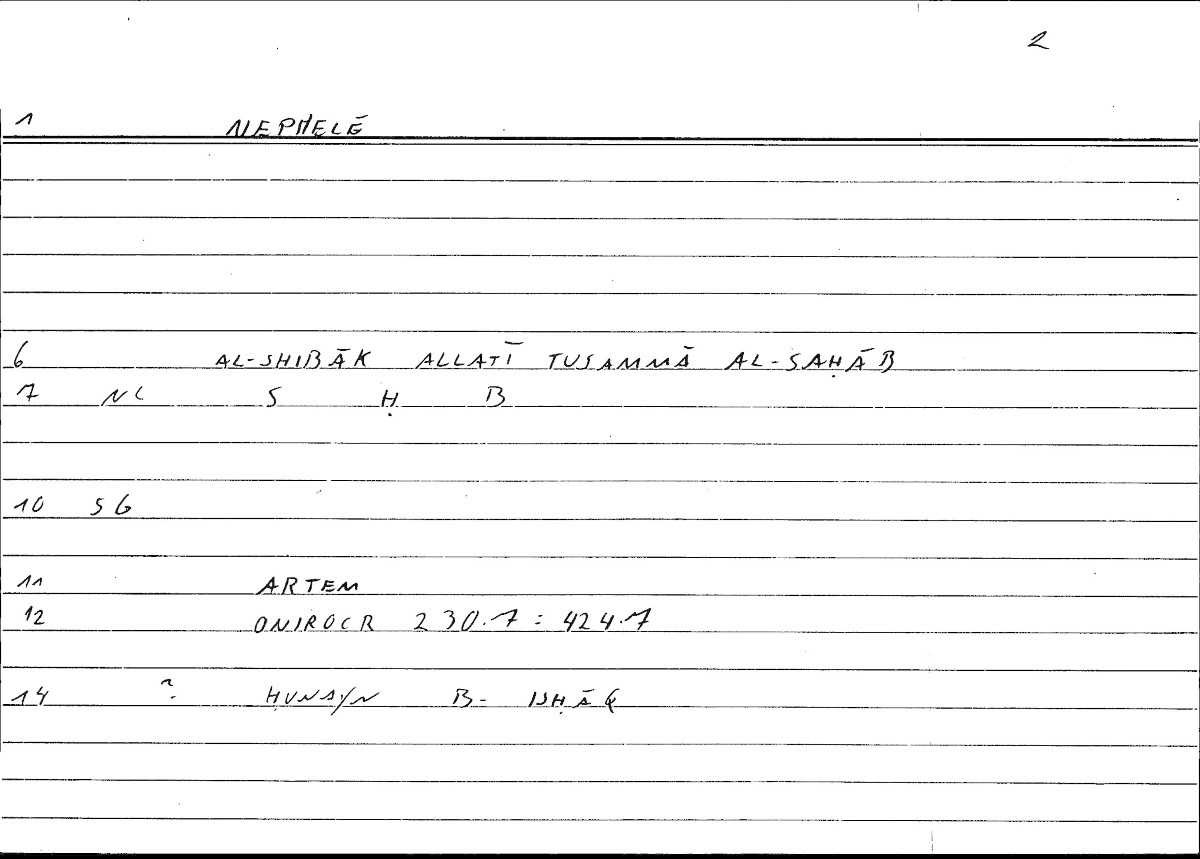 2
1 NEPHELĒ
6 AL-SHIBĀK ALLATĪ TUSAMMĀ AL-SAḤĀB
7 NL S Ḥ B
10 SG
11 ARTEM
12 ONIROCR 230.7 = 424.7
14 ? ḤUNAYN B- ISḤĀQ